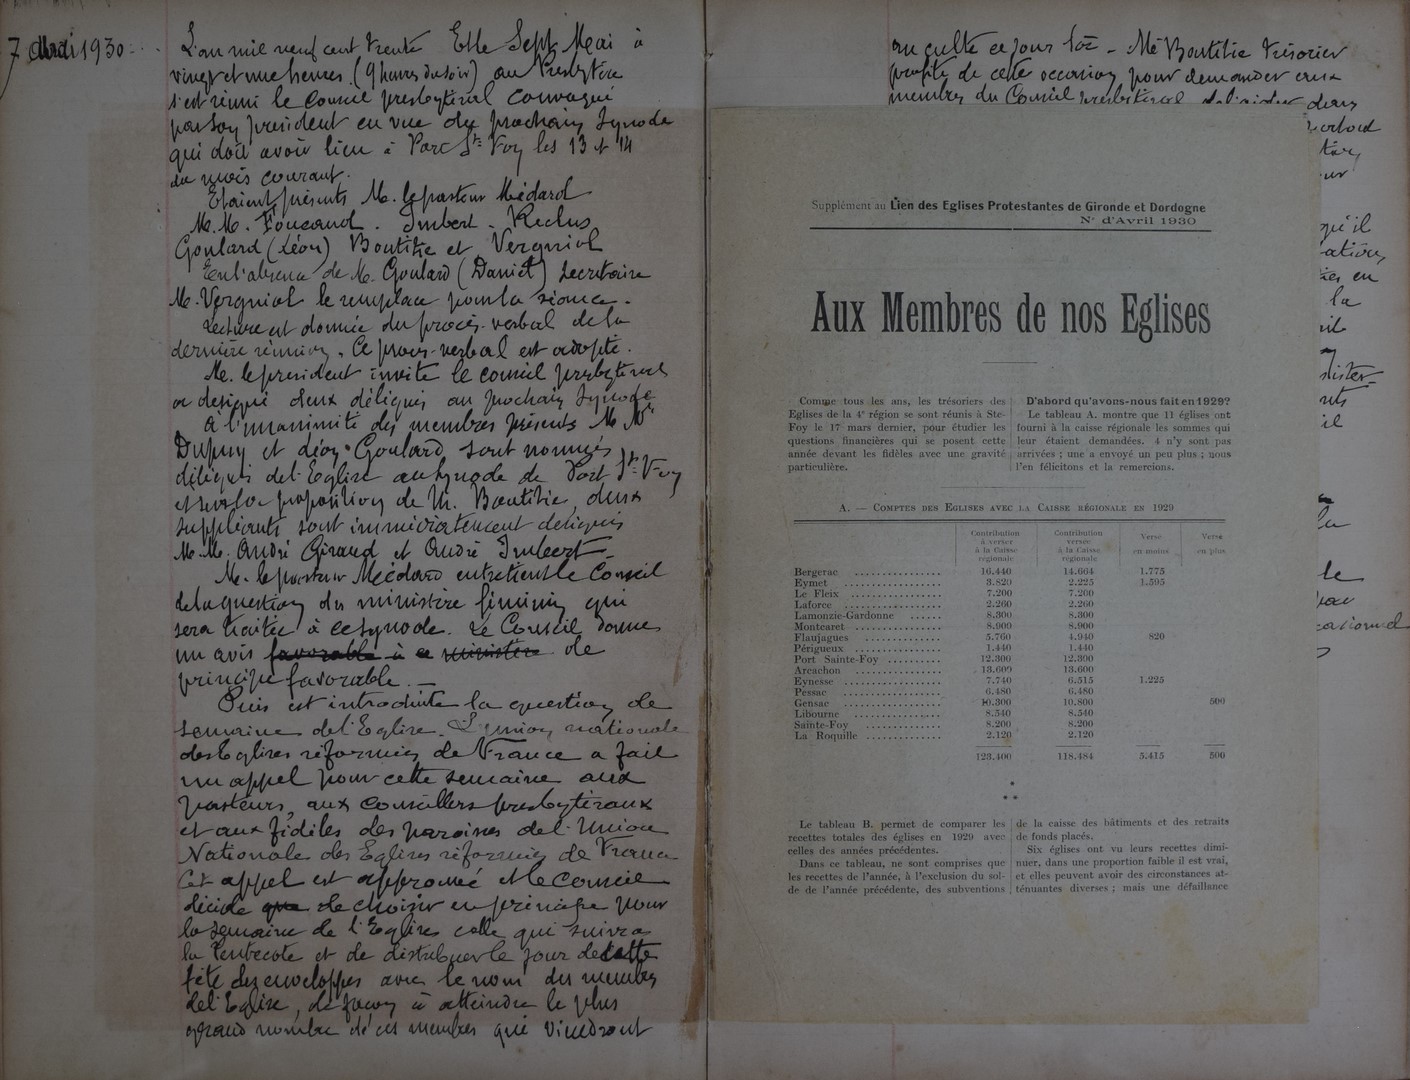 7 Mai 1930.
L'an mil neuf cent trente Et le Sept Mai à
vingt et une heures (9 heures du soir) au Presbytère
s'est réuni le Conseil presbytéral convoqué
par son président en vue du prochain Synode
qui doit avoir lieu à Port Ste Foy les 13 et 14
du mois courant.
Etaient présents M. le pasteur Médard
M.M. Foucaud. Imbert. Reclus
Goulard (Léon) Boutitie et Vergniol
En l'absence de M. Goulard (Daniel) Secrétaire
M. Vergniol le remplace pour la séance.
Lecture est donnée du procès-verbal de la
dernière réunion. Ce procès-verbal est adopté.
M. le président invite le conseil presbytéral
a désigné deux délégués au prochain Synode
À l'unanimité des membres présents M Mrs
Dupuy et Léon Goulard sont nommés
délégués de l'Eglise au Synode de Port Ste Foy
et sur la proposition de M. Boutitie, deux
suppléants sont immédiatement désignés
M.M. André Giraud et André Imbert.
M. le pasteur Médard entretient le Conseil
de la question du ministère féminin qui
sera traitée à ce synode. Le Conseil donne
un avis favorable à ce ministère de
principe favorable. —
Puis est introduite la question de
semaine de l'Eglise. L'union nationale
des Eglises réformées de France a fait
un appel pour cette semaine aux
pasteurs, aux conseillers presbytéraux
et aux fidèles des paroisses de l'Union
Nationale des Eglises réformées de France
Cet appel est approuvé et le conseil
décide que de choisir en principe pour
la semaine de l'Eglise celle qui suivra
la Pentecote et de distribuer le jour de cette
fête des enveloppes avec le nom des membres
de l'Eglise, de façon à atteindre le plus
grand nombre de ces membres qui viendront
au culte ce jour là — Mr Boutitie trésorier
profite de cette occasion pour demander aux
membres du Conseil presbytéral dans
qu'il
en
la
il
la
le
Supplément au Lien des Eglises Protestantes de Gironde et Dordogne
N° d'Avril 1930
Aux Membres de nos Eglises
Comme tous les ans, les trésoriers des
Eglises de la 4e région se sont réunis à Ste-
Foy le 17 mars dernier, pour étudier les
questions financières qui se posent cette
année devant les fidèles avec une gravité
particulière.
D'abord qu'avons-nous fait en 1929?
Le tableau A. montre que 11 églises ont
fourni à la caisse régionale les sommes qui
leur étaient demandées. 4 n'y sont pas
arrivées ; une a envoyé un peu plus ; nous
l'en félicitons et la remercions.
A. — Comptes des Eglises avec la Caisse régionale en 1929
Contribution à verser à la Caisse régionale Contribution versée à la Caisse régionale Versé en moins Versé en plus
Bergerac ................ 16.440 14.664 1.775
Eymet ................ 3.820 2.225 1.595
Le Fleix ................ 7.200 7.200
Laforce ................ 2.260 2.260
Lamonzie-Gardonne ...... 8.300 8.300
Montcaret ................ 8.900 8.900
Flaujagues ............. 5.760 4.940 820
Périgueux ................ 1.440 1.440
Port Sainte-Foy .......... 12.300 12.300
Arcachon ................ 13.600 13.600
Eynesse ................ 7.740 6.515 1.225
Pessac ................ 6.480 6.480
Gensac ................ 10.300 10.800 500
Libourne ................ 8.540 8.540
Sainte-Foy ................ 8.200 8.200
La Roquille ............. 2.120 2.120
123.400 118.484 5.415 500
Le tableau B. permet de comparer les
recettes totales des églises en 1929 avec
celles des années précédentes.
Dans ce tableau, ne sont comprises que
les recettes de l'année, à l'exclusion du sol-
de de l'année précédente, des subventions
de la caisse des bâtiments et des retraits
de fonds placés.
Six églises ont vu leurs recettes dimi-
nuer, dans une proportion faible il est vrai,
et elles peuvent avoir des circonstances at-
ténuantes diverses ; mais une défaillance